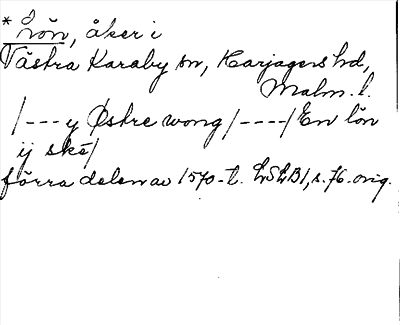 * Lön, åker i
Västra Karaby sn, Harjagers hd,
Malm. l.
/---y Østre wong/----/En lön
ij ske/
förra delen av 1570-t. LSLB1, s. 76. orig.